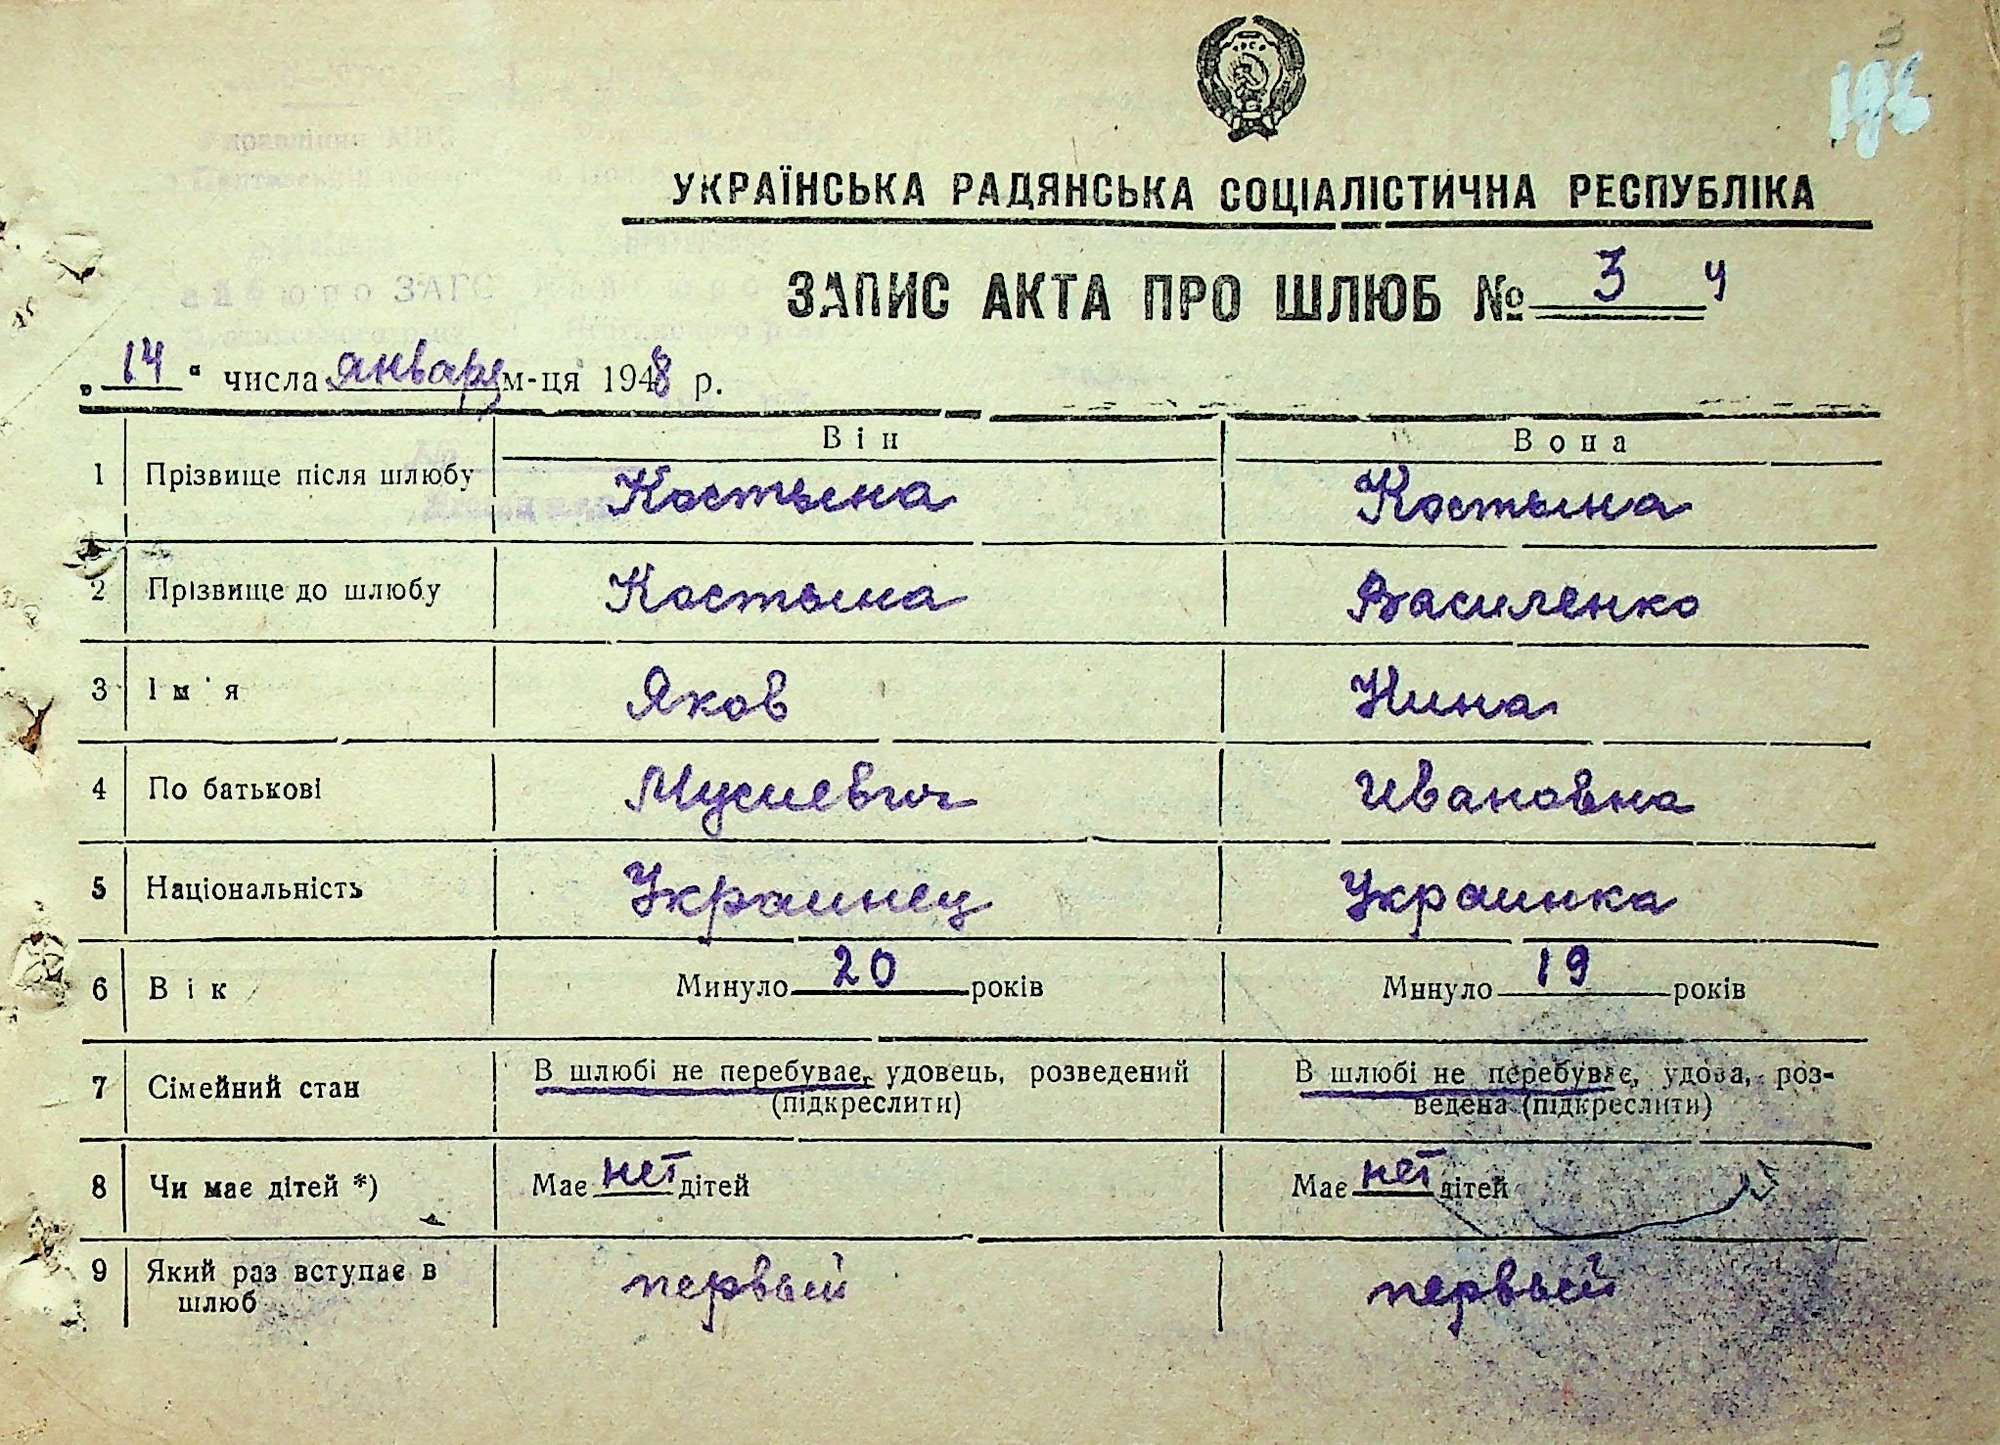 196
УКРАЇНСЬКА РАДЯНСЬКА СОЦІАЛІСТИЧНА РЕСПУБЛІКА
ЗАПИС АКТА ПРО ШЛЮБ № 3 ч
„14“ числа января м-ця 1948 р.
Він Вона
1 Прізвище після шлюбу Костына Костына
2 Прізвище до шлюбу Костына Василенко
3 Ім'я Яков Нина
4 По батькові Мусиевич Ивановна
5 Національність Украинец Украинка
6 Вік Минуло 20 років Минуло 19 років
7 Сімейний стан В шлюбі не перебуває, удовець, розведений В шлюбі не перебуває, удова, роз-
(підкреслити) ведена (підкреслити)
8 Чи має дітей *) Має нет дітей Має нет дітей
9 Який раз вступає в первый первый
шлюб